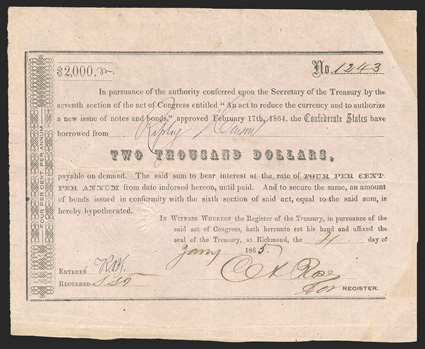 $2,000. No. 1243
In pursuance of the authority conferred upon the Secretary of the Treasury by the
seventh section of the act of Congress entitled "An act to reduce the currency and to authorize
a new issue of notes and bonds," approved February 17th, 1864, the Confederate States have
borrowed from
TWO THOUSAND DOLLARS,
payable on demand. The said sum to bear interest at the rate of FOUR PER CENT.
PER ANNUM from date indorsed hereon, until paid. And to secure the same, an amount
of bonds issued in conformity with the sixth section of said act, equal to the said sum, is
hereby hypothecated.
In Witness Whereof the Register of the Treasury, in pursuance of the
said act of Congress, hath hereunto set his hand and affixed the
seal of the Treasury, at Richmond, the 4 day of
Jany 1865
Entered
Recorded
for REGISTER.